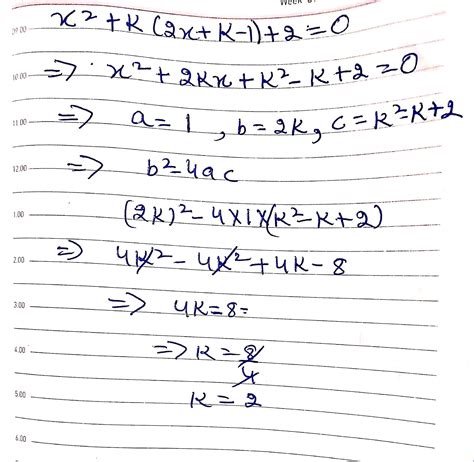 Week
09.00 x² + K (2x + K-1) + 2 = 0
10.00 => x² + 2Kx + K² - K + 2 = 0
11.00 => a = 1 , b = 2K, c = K²-K+2
12.00 => b²-4ac
1.00 (2K)² - 4X1X(K²-K+2)
2.00 => 4K² - 4K² + 4K - 8
3.00 => 4K = 8
4.00 => K = 8/4
5.00 K = 2
6.00